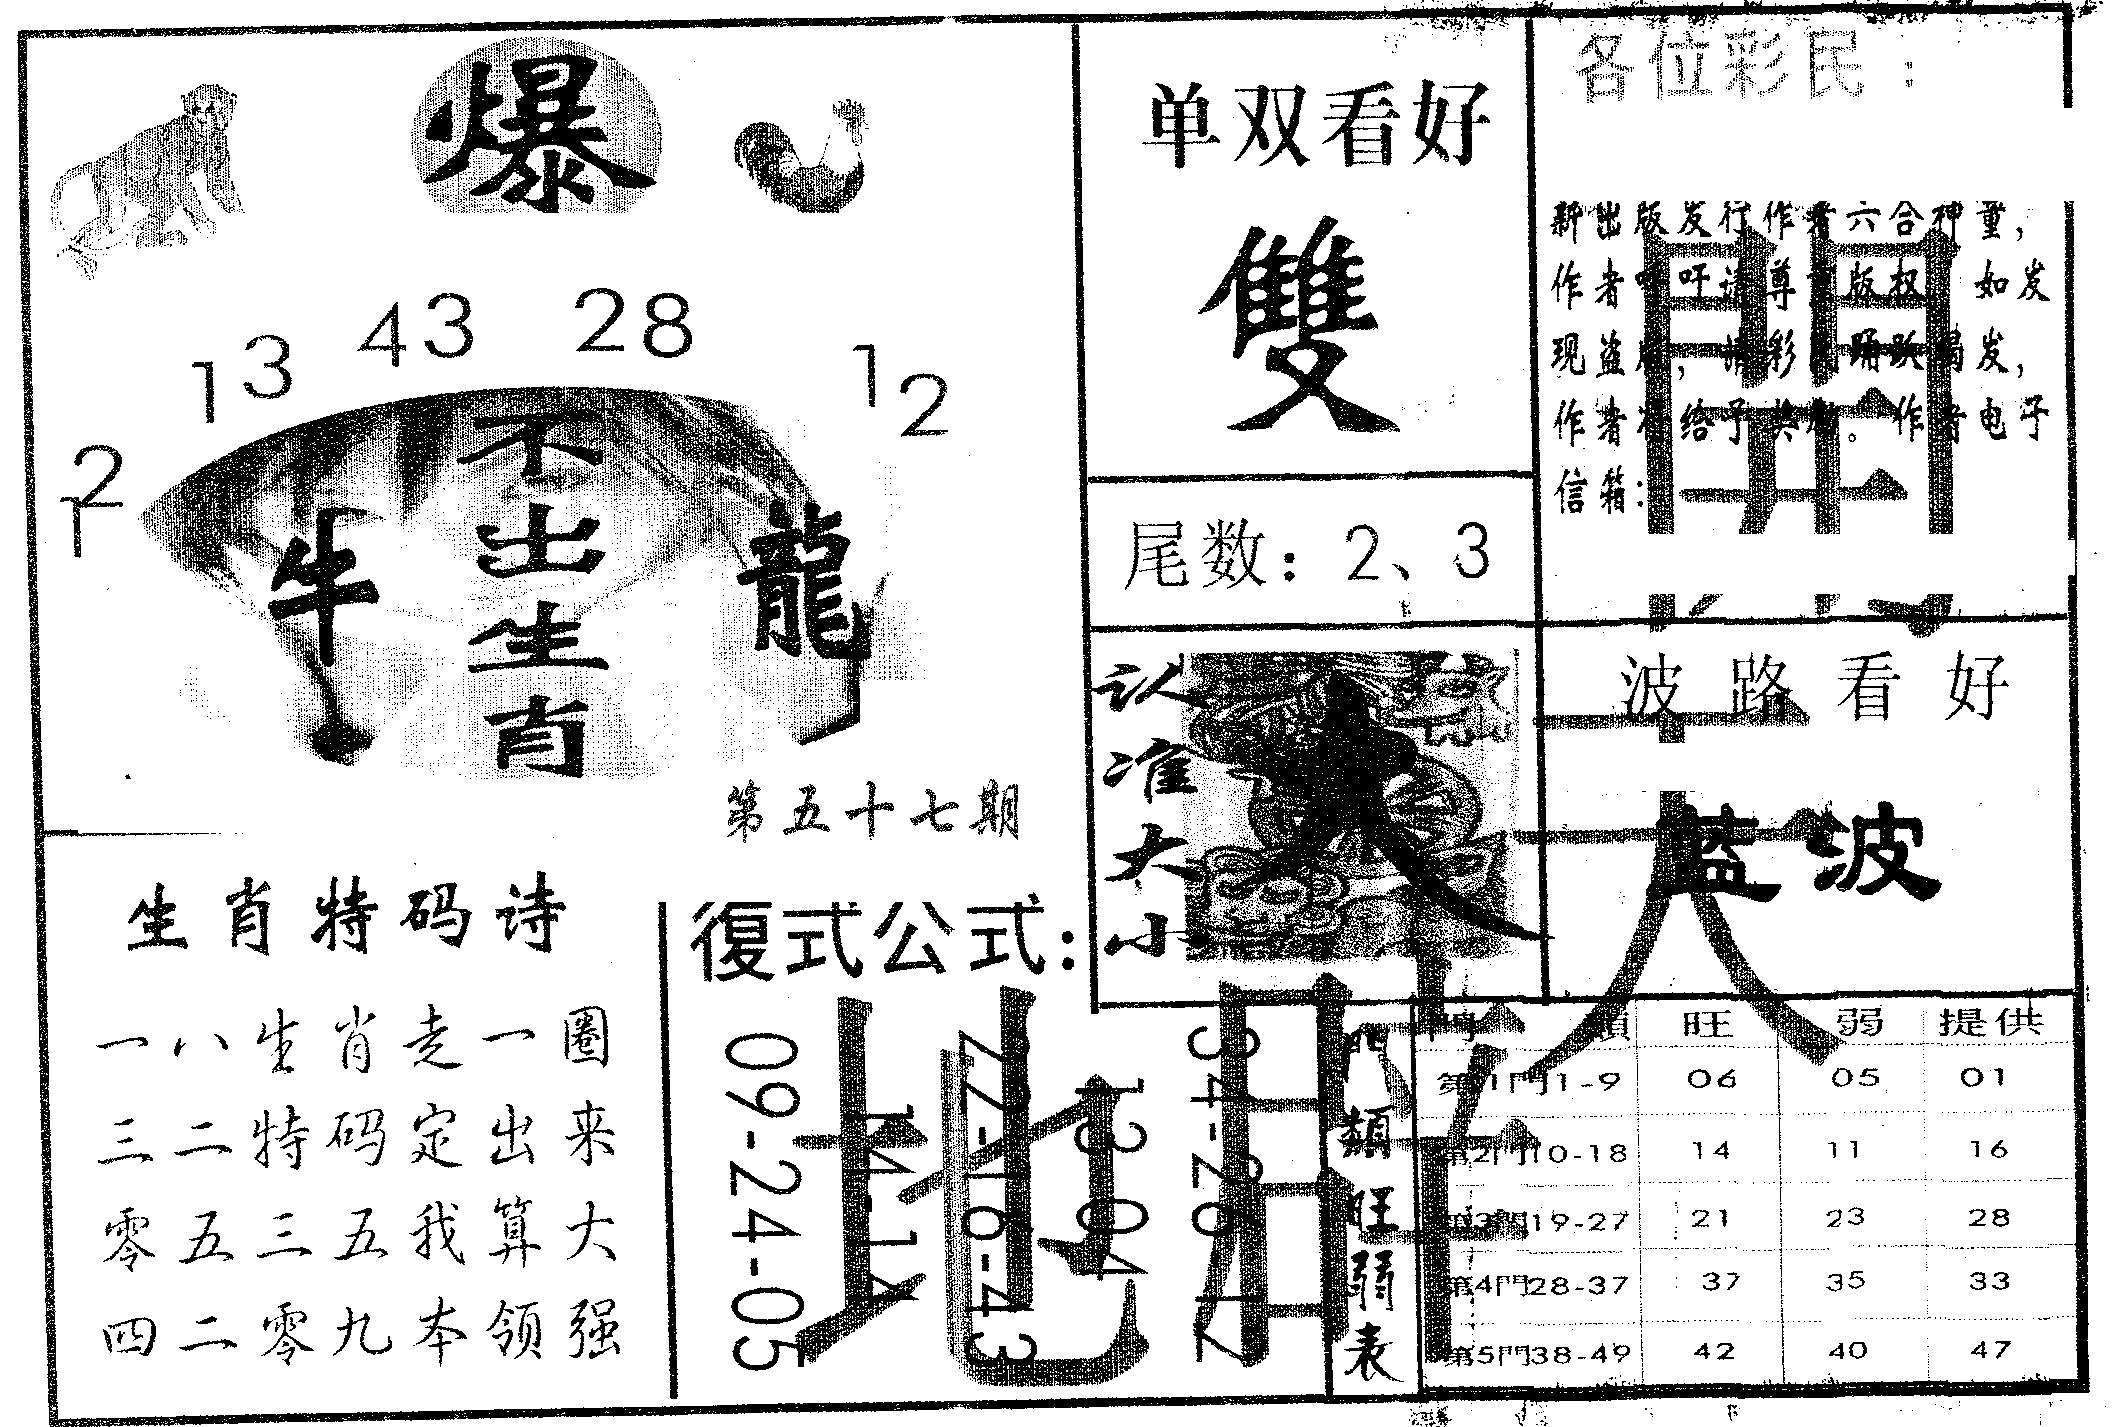 爆
13 43 28 12
21
不出生肖
牛 龍
第五十七期
单双看好
雙
尾数：2、3
认准大小
大
各位彩民：
新出版发行作者六合神童，
作者呼吁请尊重版权，如发
现盗版，请彩民踊跃揭发，
作者将给予奖励。作者电子
信箱：
波路看好
藍波
生肖特码诗
一八生肖走一圈
三二特码定出来
零五三五我算大
四二零九本领强
復式公式：
09-24-05
14-14
22-16-43
13 04
34-26-17
門類旺弱表
門類 旺 弱 提供
第1門1-9 06 05 01
第2門10-18 14 11 16
第3門19-27 21 23 28
第4門28-37 37 35 33
第5門38-49 42 40 47